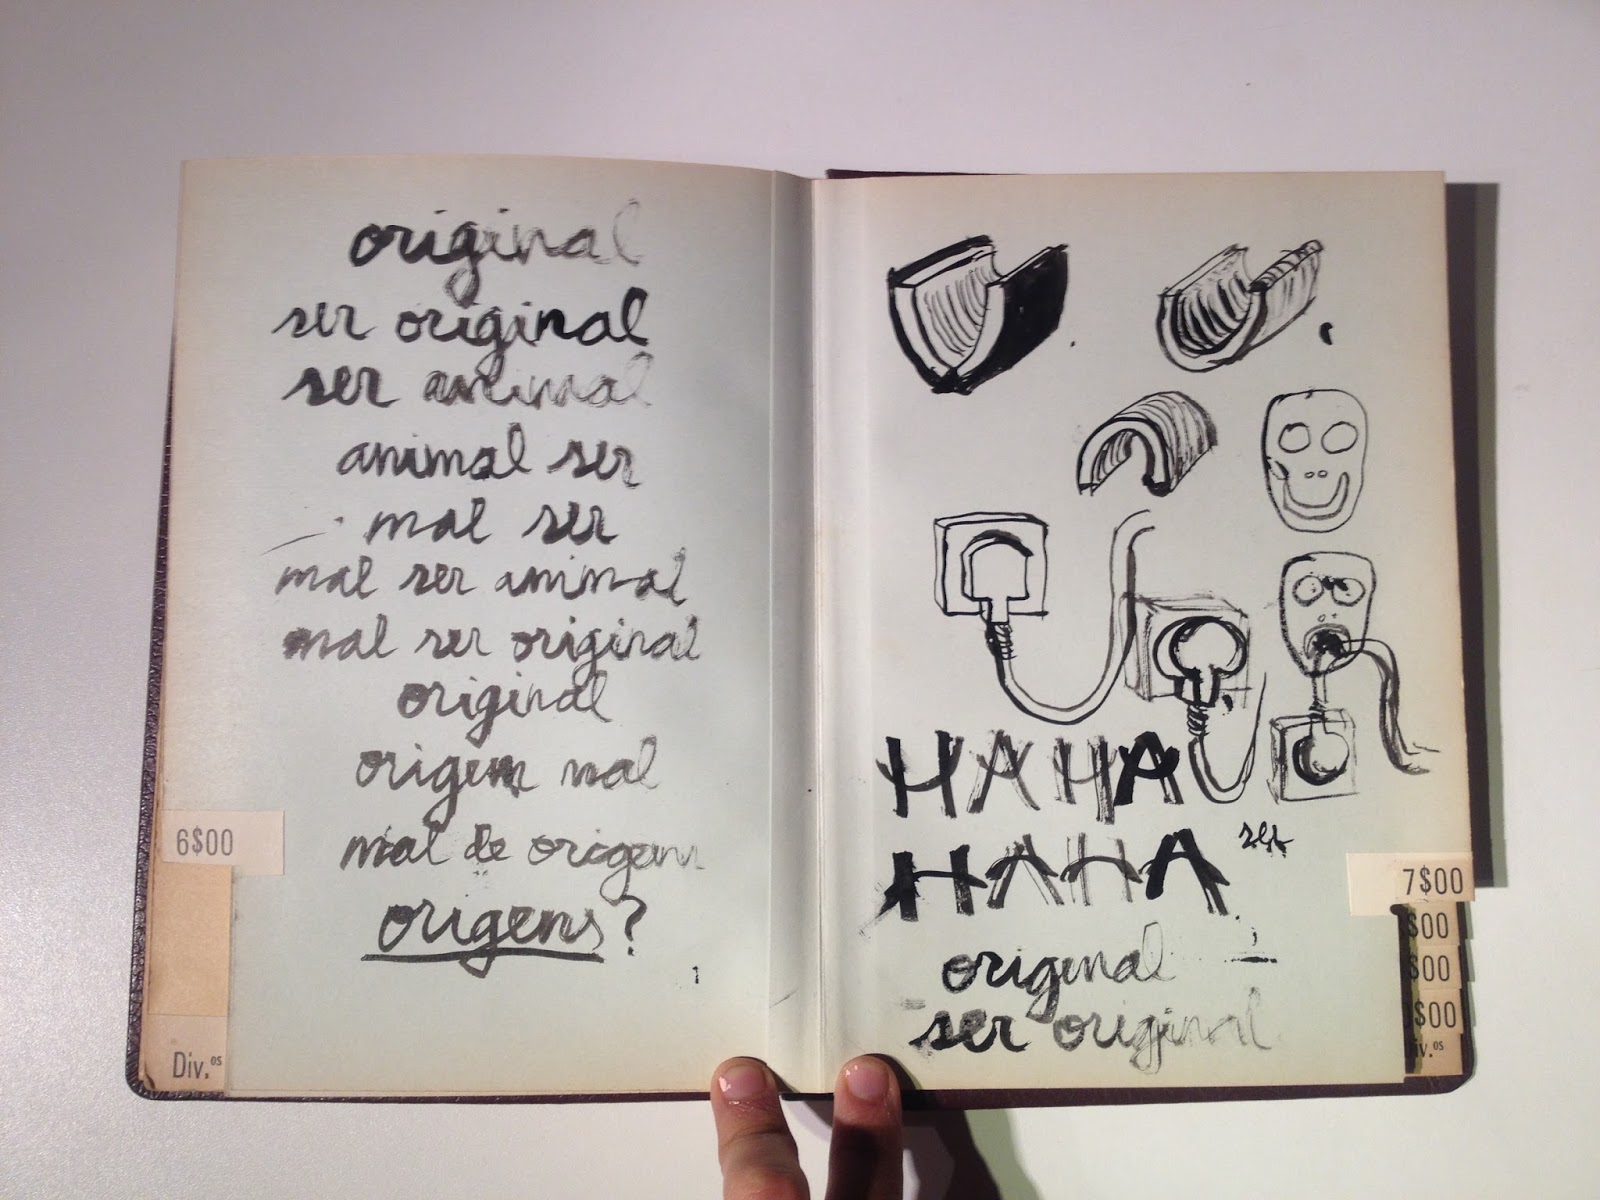 original
ser original
ser animal
animal ser
mal ser
mal ser animal
mal ser original
original
origem mal
mal de origem
origens?
1
6$00
Div.os
HAHA
HAHA ser
original
ser original
7$00
$00
$00
$00
iv.os